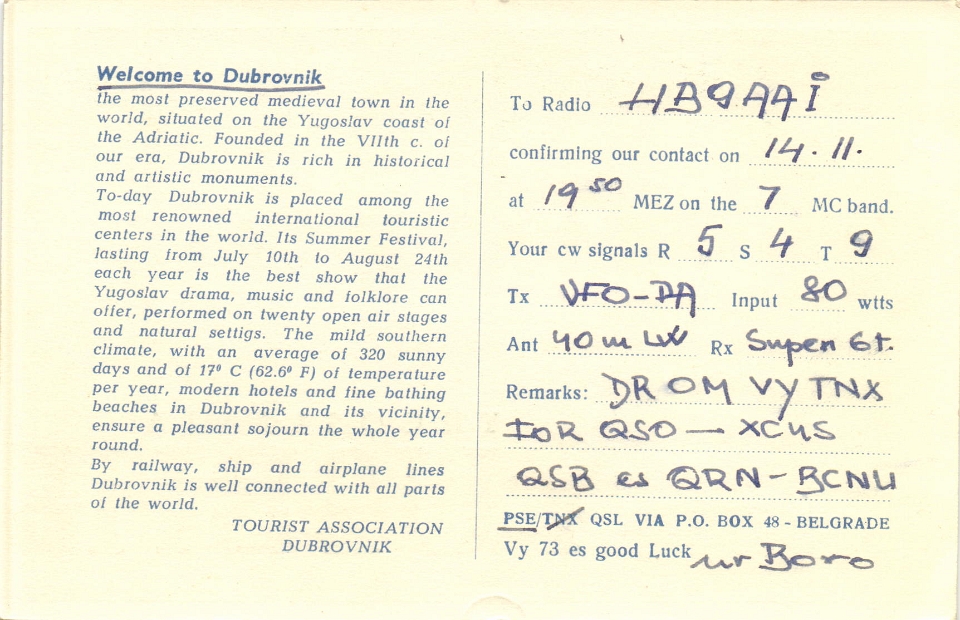 Welcome to Dubrovnik
the most preserved medieval town in the
world, situated on the Yugoslav coast of
the Adriatic. Founded in the VIIth c. of
our era, Dubrovnik is rich in historical
and artistic monuments.
To-day Dubrovnik is placed among the
most renowned international touristic
centers in the world. Its Summer Festival,
lasting from July 10th to August 24th
each year is the best show that the
Yugoslav drama, music and folklore can
offer, performed on twenty open air stages
and natural settigs. The mild southern
climate, with an average of 320 sunny
days and of 17⁰ C (62.6⁰ F) of temperature
per year, modern hotels and fine bathing
beaches in Dubrovnik and its vicinity,
ensure a pleasant sojourn the whole year
round.
By railway, ship and airplane lines
Dubrovnik is well connected with all parts
of the world.
TOURIST ASSOCIATION
DUBROVNIK
To Radio HB9AAI
confirming our contact on 14.11.
at 19⁵⁰ MEZ on the 7 MC band.
Your cw signals R 5 S 4 T 9
Tx VFO-PA Input 80 wtts
Ant 40m LW Rx Super 6t.
Remarks: DR OM VY TNX
FOR QSO — XCUS
QSB es QRN - BCNU
PSE/TNX QSL VIA P.O. BOX 48 - BELGRADE
Vy 73 es good Luck ur Boro